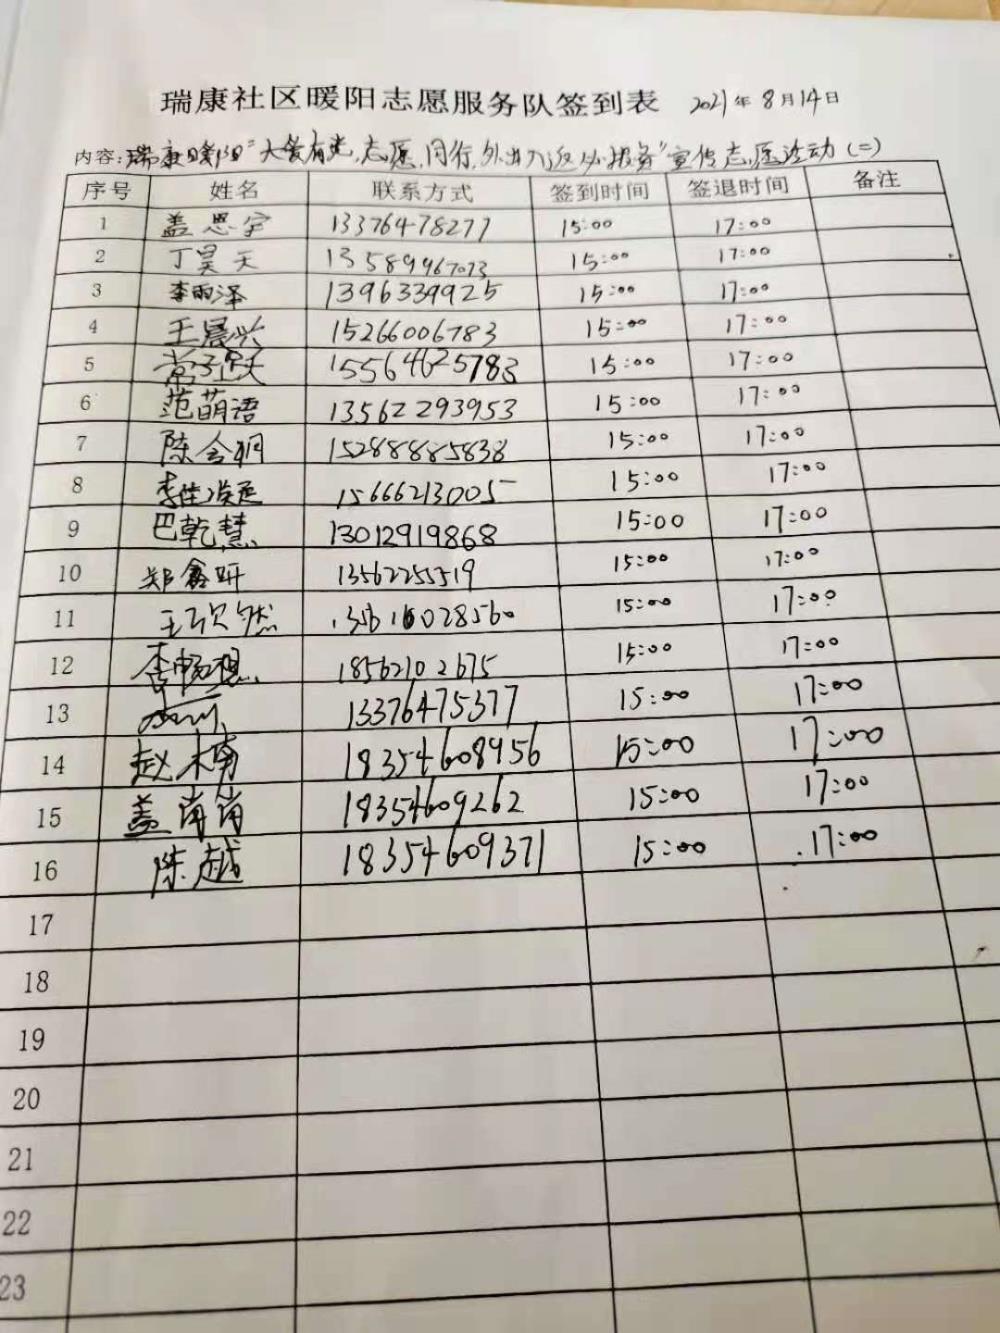 瑞康社区暖阳志愿服务队签到表 2021年8月14日
内容:瑞康暖阳"大爱有光,志愿同行,外出入返必报备"宣传志愿活动(二)
序号 姓名 联系方式 签到时间 签退时间 备注
1 盖思宇 13376478277 15:00 17:00
2 丁昊天 13589967073 15:00 17:00
3 李雨泽 1396339925 15:00 17:00
4 王晨兴 15266006783 15:00 17:00
5 常子跃 15564625783 15:00 17:00
6 范萌语 13562293953 15:00 17:00
7 陈含桐 15288885838 15:00 17:00
8 李佳 15666213005 15:00 17:00
9 巴乾慧 13012919868 15:00 17:00
10 郑鑫妍 13562255519 15:00 17:00
11 15:00 17:00
12 李畅想 18562102675 15:00 17:00
13 13376475377 15:00 17:00
14 赵楠 18354608956 15:00 17:00
15 盖肖肖 18354609262 15:00 17:00
16 陈越 18354609371 15:00 17:00
17
18
19
20
21
22
23